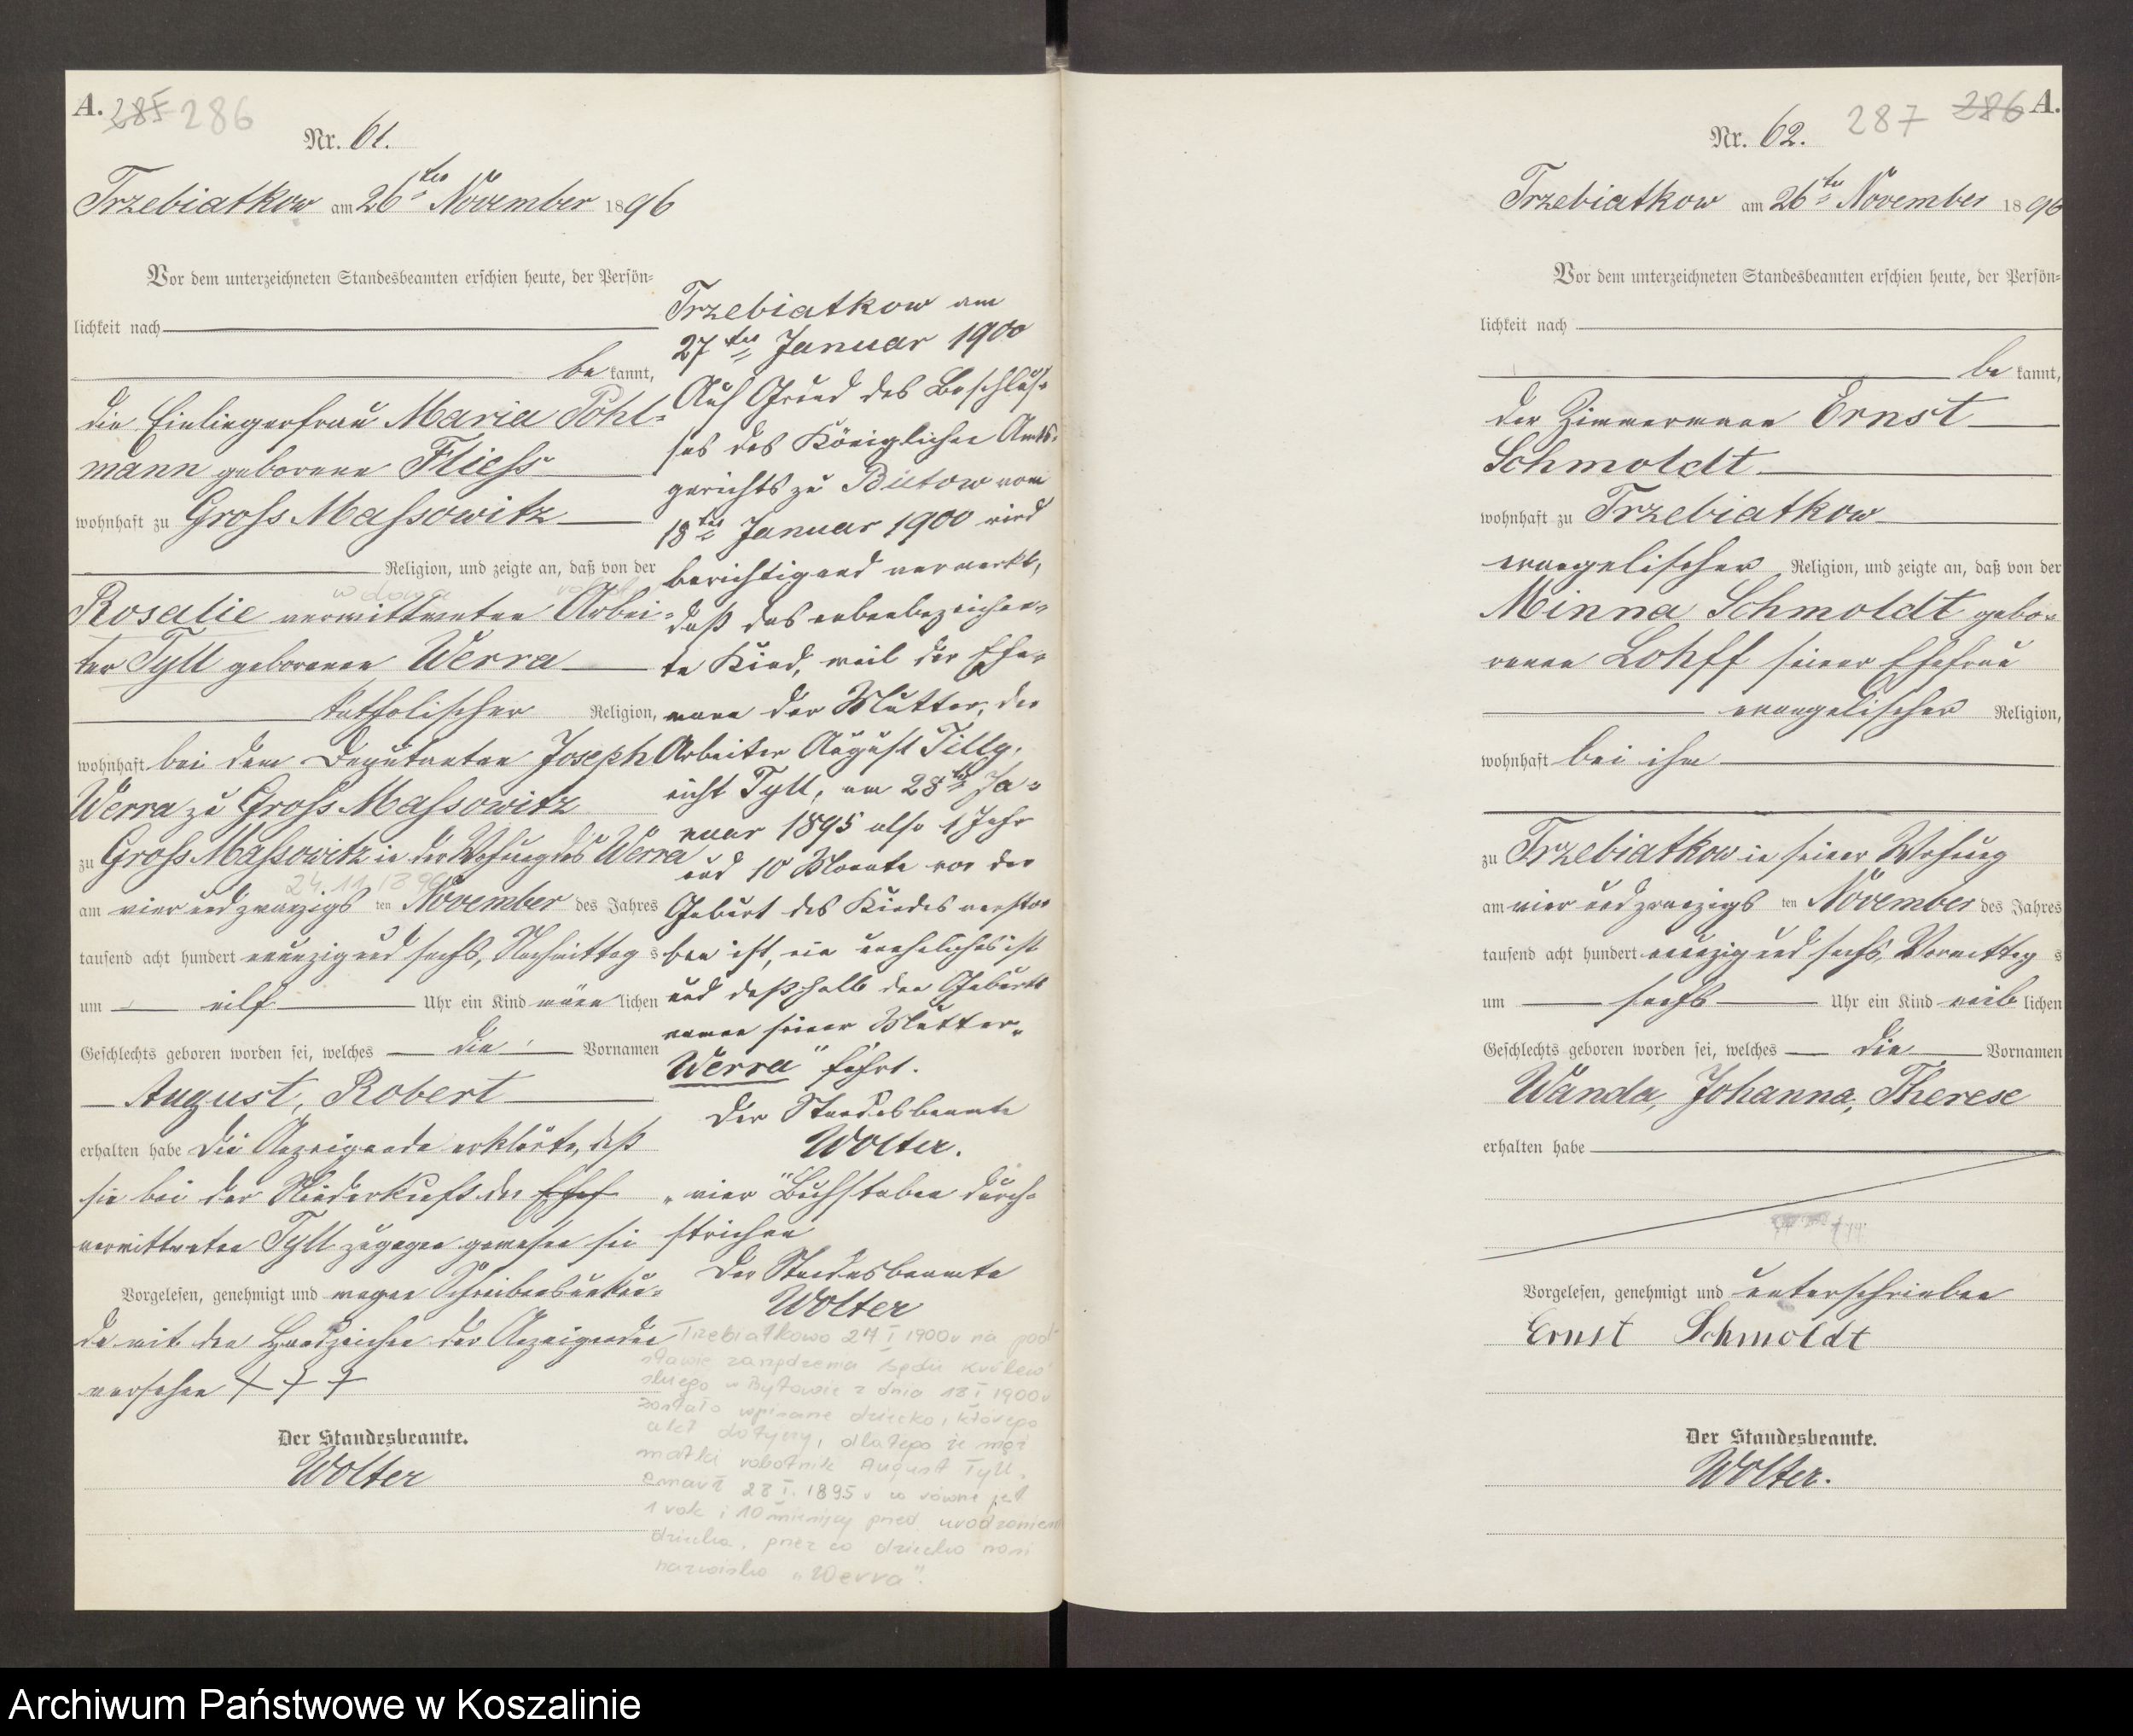 A. 285 286
Nr. 61.
Trzebiatkow am 26ten November 1896
Vor dem unterzeichneten Standesbeamten erschien heute, der Persön-
lichkeit nach
be kannt,
die Einliegerfrau Maria Pohl-
mann geborene Fliess
wohnhaft zu Gross Massowitz
Religion, und zeigte an, daß von der
wdowa
Rosalie verwittweten Arbei-
ter Tyll geborenen Werra
katholischer Religion,
wohnhaft bei dem Deputanten Joseph
Werra zu Gross Massowitz
zu Gross Massowitz in der Wohnung des Werra
24.11.1896
am vier und zwanzigs ten November des Jahres
tausend acht hundert neunzig und sechs, Nachmittag s
um eilf Uhr ein Kind männ lichen
Geschlechts geboren worden sei, welches die Vornamen
August, Robert
erhalten habe Die Anzeigende erklärte, daß
sie bei der Niederkunft der Ehef
verwittweten Tyll zugegen gewesen sei
Vorgelesen, genehmigt und wegen Schreibensunkun-
de mit den Handzeichen der Anzeigenden
versehen + + +
Der Standesbeamte.
Wolter
Trzebiatkow am
27ten Januar 1900
Auf Grund des Beschlus-
ses des Königlichen Amts-
gerichts zu Bütow vom
18ten Januar 1900 wird
berichtigend vermerkt,
daß das nebenbezeichne-
te Kind, weil der Ehe-
mann der Mutter, der
Arbeiter August Tilly,
nicht Tyll, am 28ten Ja-
nuar 1895 also 1 Jahr
und 10 Monate vor der
Geburt des Kindes verstor
ben ist, ein uneheliches ist
und deßhalb den Geburts
namen seiner Mutter
"Werra" führt.
Der Standesbeamte
Wolter.
"vier" Buchstaben durch-
strichen
Der Standesbeamte
Wolter
Trzebiatkowo 27 I 1900 r na pod
stawie zarządzenia Sądu królew
skiego w Bytowie z dnia 18 I 1900 r
zostało wpisane dziecko, którego
akt dotyczy, dlatego że mąż
matki robotnik August Tyll,
zmarł 28 I. 1895 r co równe jest
1 rok i 10 miesięcy przed urodzeniem
dziecka, przez co dziecko nosi
nazwisko "Werra".
287 286 A.
Nr. 62.
Trzebiatkow am 26ten November 1896
Vor dem unterzeichneten Standesbeamten erschien heute, der Persön-
lichkeit nach
be kannt,
der Zimmermann Ernst
Schmoldt
wohnhaft zu Trzebiatkow
evangelischer Religion, und zeigte an, daß von der
Minna Schmoldt gebo-
renen Lohff seiner Ehefrau
evangelischer Religion,
wohnhaft bei ihm
zu Trzebiatkow in seiner Wohnung
am vier und zwanzigs ten November des Jahres
tausend acht hundert neunzig und sechs, Vormittag s
um sechs Uhr ein Kind weib lichen
Geschlechts geboren worden sei, welches die Vornamen
Wanda, Johanna, Therese
erhalten habe
Vorgelesen, genehmigt und unterschrieben
Ernst Schmoldt
Der Standesbeamte.
Wolter.
Archiwum Państwowe w Koszalinie